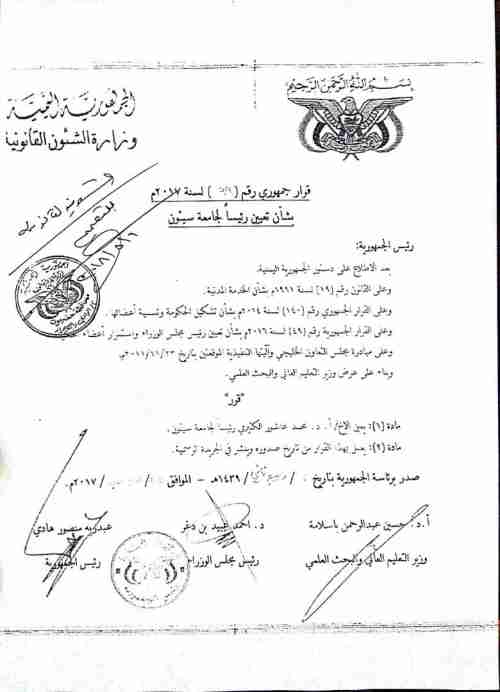 بسم الله الرحمن الرحيم
الجمهورية اليمنية
وزارة الشئون القانونية
قرار جمهوري رقم ( ) لسنة ٢٠١٧م
بشأن تعيين رئيساً لجامعة سيئون
رئيس الجمهورية:
بعد الاطلاع على دستور الجمهورية اليمنية.
وعلى القانون رقم (١٩) لسنة ١٩٩١م بشأن الخدمة المدنية.
وعلى القرار الجمهوري رقم (١٤٠) لسنة ٢٠١٤م بشأن تشكيل الحكومة وتسمية أعضائها.
وعلى القرار الجمهورية رقم (٤٩) لسنة ٢٠١٦م بشأن تعيين رئيس مجلس الوزراء واستمرار أعضاء
وعلى مبادرة مجلس التعاون الخليجي وآليتها التنفيذية الموقعتين بتاريخ ٢٠١١/١١/٢٣م.
وبناء على عرض وزير التعليم العالي والبحث العلمي.
"قرر"
مادة (١): يعين الاخ/ أ. د. محمد عاشور الكثيري رئيسا لجامعة سيئون.
مادة (٢): يعمل بهذا القرار من تاريخ صدوره وينشر في الجريدة الرسمية.
صدر برئاسة الجمهورية بتاريخ / /١٤٣٩هـ - الموافق / /٢٠١٧م.
أ.د. حسين عبدالرحمن باسلامة
د. احمد عبيد بن دغر
عبدربه منصور هادي
وزير التعليم العالي والبحث العلمي
رئيس مجلس الوزراء
رئيس الجمهورية